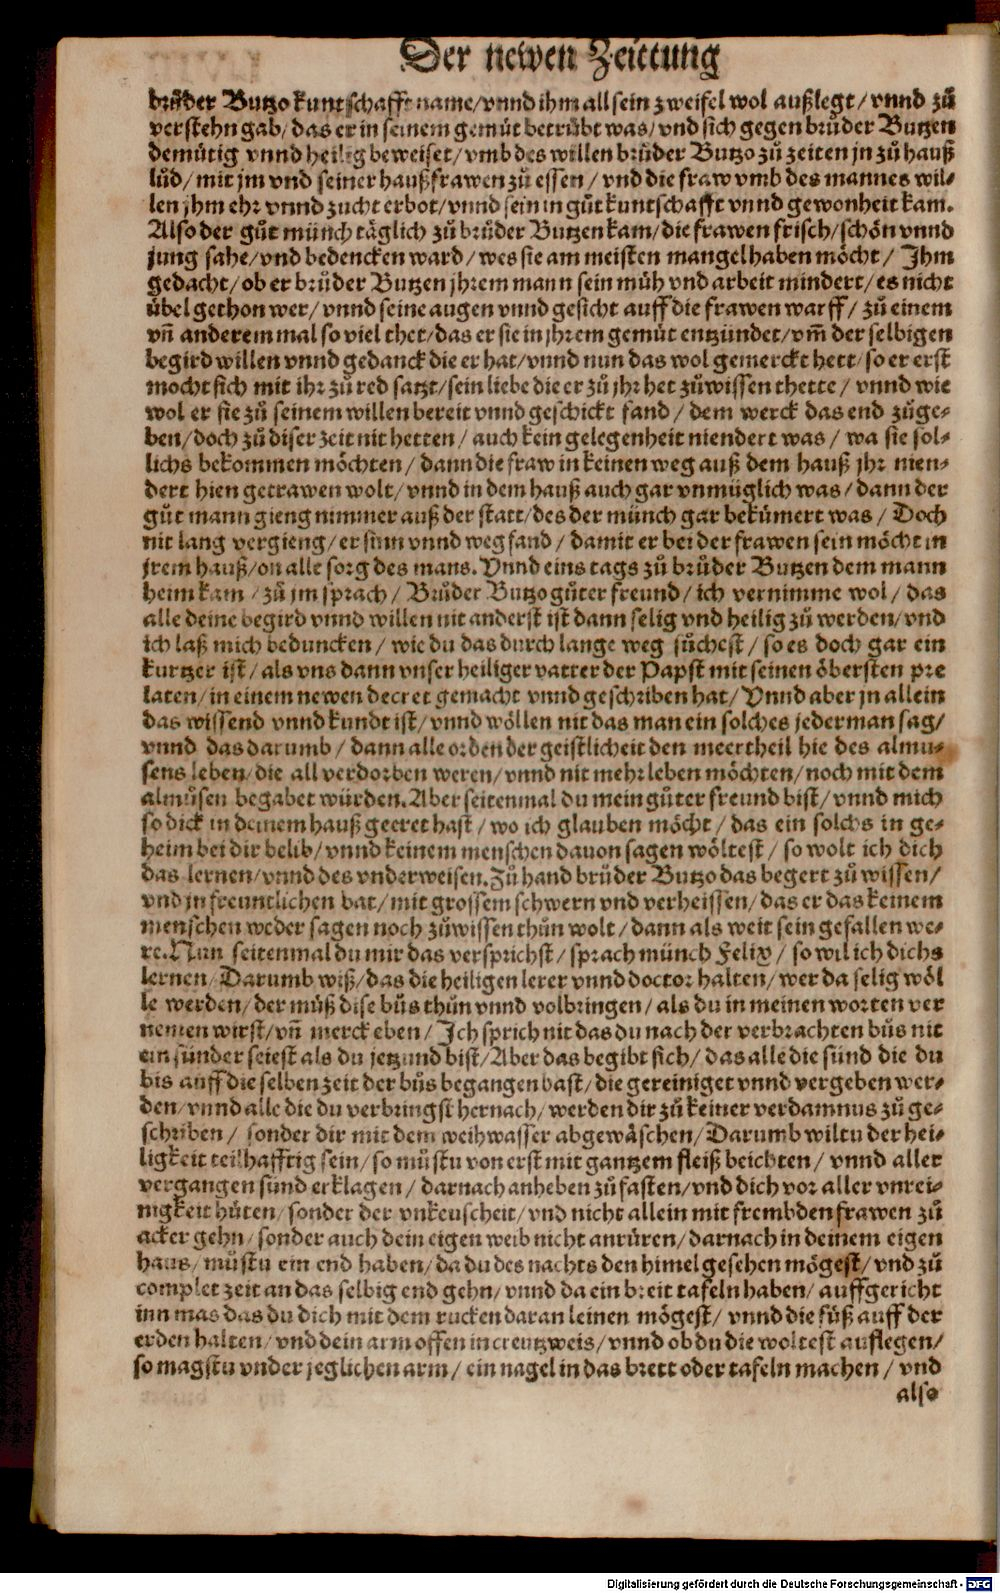 Der newen Zeittung
brůder Butzo kuntschafft name/vnnd ihm all sein zweifel wol außlegt/vnnd zů
verstehn gab/das er in seinem gemüt betrübt was/vnd sich gegen brůder Butzen
demütig vnnd heilig beweiset/vmb des willen brůder Butzo zů zeiten jn zů hauß
lůd/mit jm vnd seiner haußfrawen zů essen/vnd die fraw vmb des mannes wil-
len jhm ehr vnnd zucht erbot/vnnd sein in gůt kuntschafft vnnd gewonheit kam.
Also der gůt münch täglich zů brůder Butzen kam/die frawen frisch/schön vnnd
jung sahe/vnd bedencken ward/wes sie am meisten mangel haben möcht/Ihm
gedacht/ob er brůder Butzen jhrem mann sein müh vnd arbeit mindert/es nicht
übel gethon wer/vnnd seine augen vnnd gesicht auff die frawen warff/zů einem
vñ anderem mal so viel thet/das er sie in jhrem gemüt entzündet/vm̃ der selbigen
begird willen vnnd gedanck die er hat/vnnd nun das wol gemerckt hett/so er erst
mocht sich mit ihr zů red satzt/sein liebe die er zů jhr het zůwissen thette/vnnd wie
wol er sie zů seinem willen bereit vnnd geschickt fand/dem werck das end zůge-
ben/doch zů diser zeit nit hetten/auch kein gelegenheit niendert was/wa sie sol-
lichs bekommen möchten/dann die fraw in keinen weg auß dem hauß jhr nien-
dert hien getrawen wolt/vnnd in dem hauß auch gar vnmüglich was/dann der
gůt mann gieng nimmer auß der statt/des der münch gar bekümert was/Doch
nit lang vergieng/er sinn vnnd weg fand/damit er bei der frawen sein möcht in
jrem hauß/on alle sorg des mans. Vnnd eins tags zů brůder Butzen dem mann
heim kam/zů jm sprach/Brůder Butzo gůter freund/ich vernimme wol/das
alle deine begird vnnd willen nit anderst ist dann selig vnd heilig zů werden/vnd
ich laß mich beduncken/wie du das durch lange weg sůchest/so es doch gar ein
kurtzer ist/als vns dann vnser heiliger vatter der Papst mit seinen öbersten pre
laten/in einem newen decret gemacht vnnd geschriben hat/Vnnd aber jn allein
das wissend vnnd kundt ist/vnnd wöllen nit das man ein solches jederman sag/
vnnd das darumb/dann alle orden der geistlicheit den meertheil hie des almu-
sens leben/die all verdorben weren/vnnd nit mehr leben möchten/noch mit dem
almůsen begabet würden. Aber seitenmal du mein gůter freund bist/vnnd mich
so dick in deinem hauß geeret hast/wo ich glauben möcht/das ein solchs in ge-
heim bei dir belib/vnnd keinem menschen dauon sagen wöltest/so wolt ich dich
das lernen/vnnd des vnderweisen. Zů hand brůder Butzo das begert zů wissen/
vnd jn freuntlichen bat/mit grossem schwern vnd verheissen/das er das keinem
menschen weder sagen noch zůwissen thůn wolt/dann als weit sein gefallen we-
re. Nun seitenmal du mir das versprichst/sprach münch Felix/so wil ich dichs
lernen/Darumb wiß/das die heiligen lerer vnnd doctor halten/wer da selig wöl
le werden/der můß dise bůs thůn vnnd volbringen/als du in meinen worten ver
nemen wirst/vñ merck eben/Ich sprich nit das du nach der verbrachten bůs nit
ein sünder seiest als du jetzund bist/Aber das begibt sich/das alle die sünd die du
bis auff die selben zeit der bůs begangen hast/die gereiniget vnnd vergeben wer-
den/vnnd alle die du verbringst hernach/werden dir zů keiner verdamnus zů ge-
schriben/sonder dir mit dem weihwasser abgewäschen/Darumb wiltu der hei-
ligkeit teilhafftig sein/so můstu von erst mit gantzem fleiß beichten/vnnd aller
vergangen sünd erklagen/darnach anheben zů fasten/vnd dich vor aller vnrei-
nigkeit hüten/sonder der vnkeuscheit/vnd nicht allein mit frembden frawen zů
acker gehn/sonder auch dein eigen weib nicht anrüren/darnach in deinem eigen
haus/můstu ein end haben/da du des nachts den himel gesehen mögest/vnd zů
complet zeit an das selbig end gehn/vnnd da ein breit tafeln haben/auffgericht
inn mas das du dich mit dem rucken daran leinen mögest/vnnd die füß auff der
erden halten/vnd dein arm offen in creutzweis/vnnd ob du die woltest auflegen/
so magstu vnder jeglichen arm/ein nagel in das brett oder tafeln machen/vnd
also
Digitalisierung gefördert durch die Deutsche Forschungsgemeinschaft - DFG